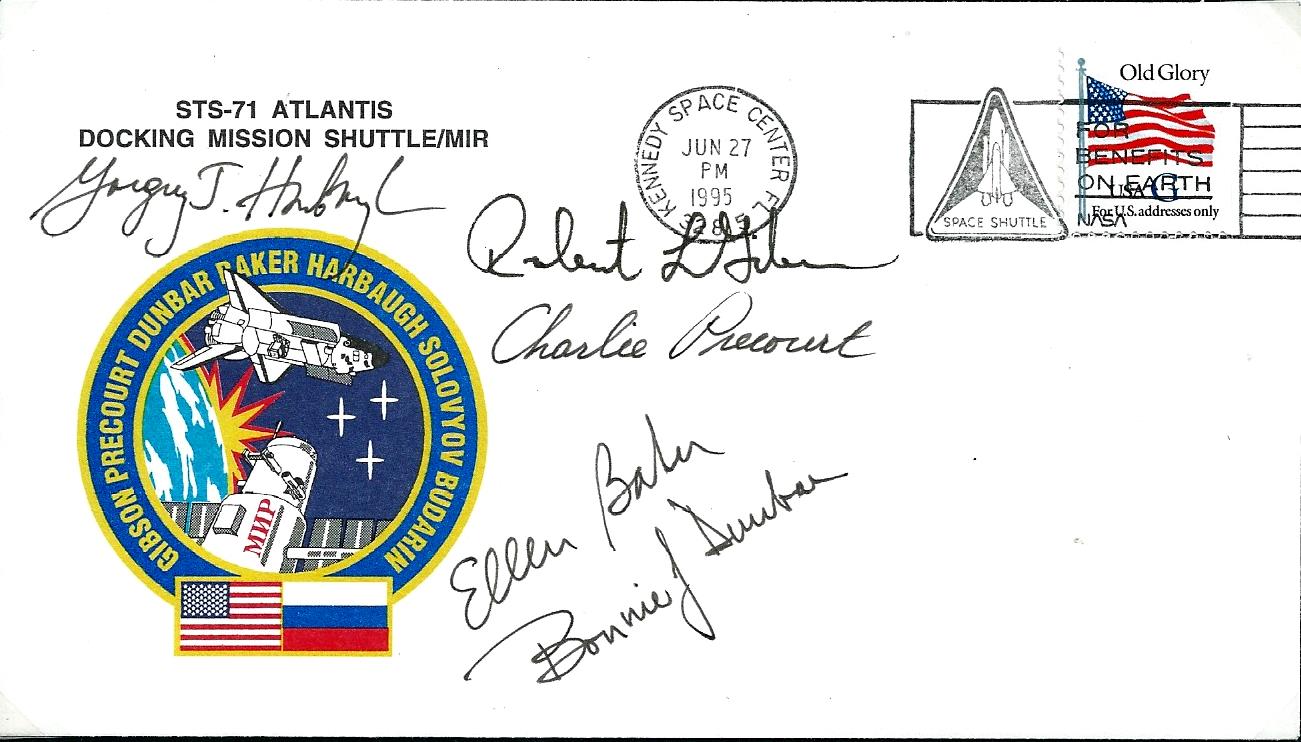 STS-71 ATLANTIS
DOCKING MISSION SHUTTLE/MIR
Gregory J. Harbaugh
GIBSON PRECOURT DUNBAR BAKER HARBAUGH SOLOVYOV BUDARIN
МИР
KENNEDY SPACE CENTER FL
JUN 27
PM
1995
Robert L Gibson
Charlie Precourt
Ellen Baker
Bonnie J Dunbar
SPACE SHUTTLE
Old Glory
FOR
BENEFITS
ON EARTH
NASA
USA G
For U.S. addresses only